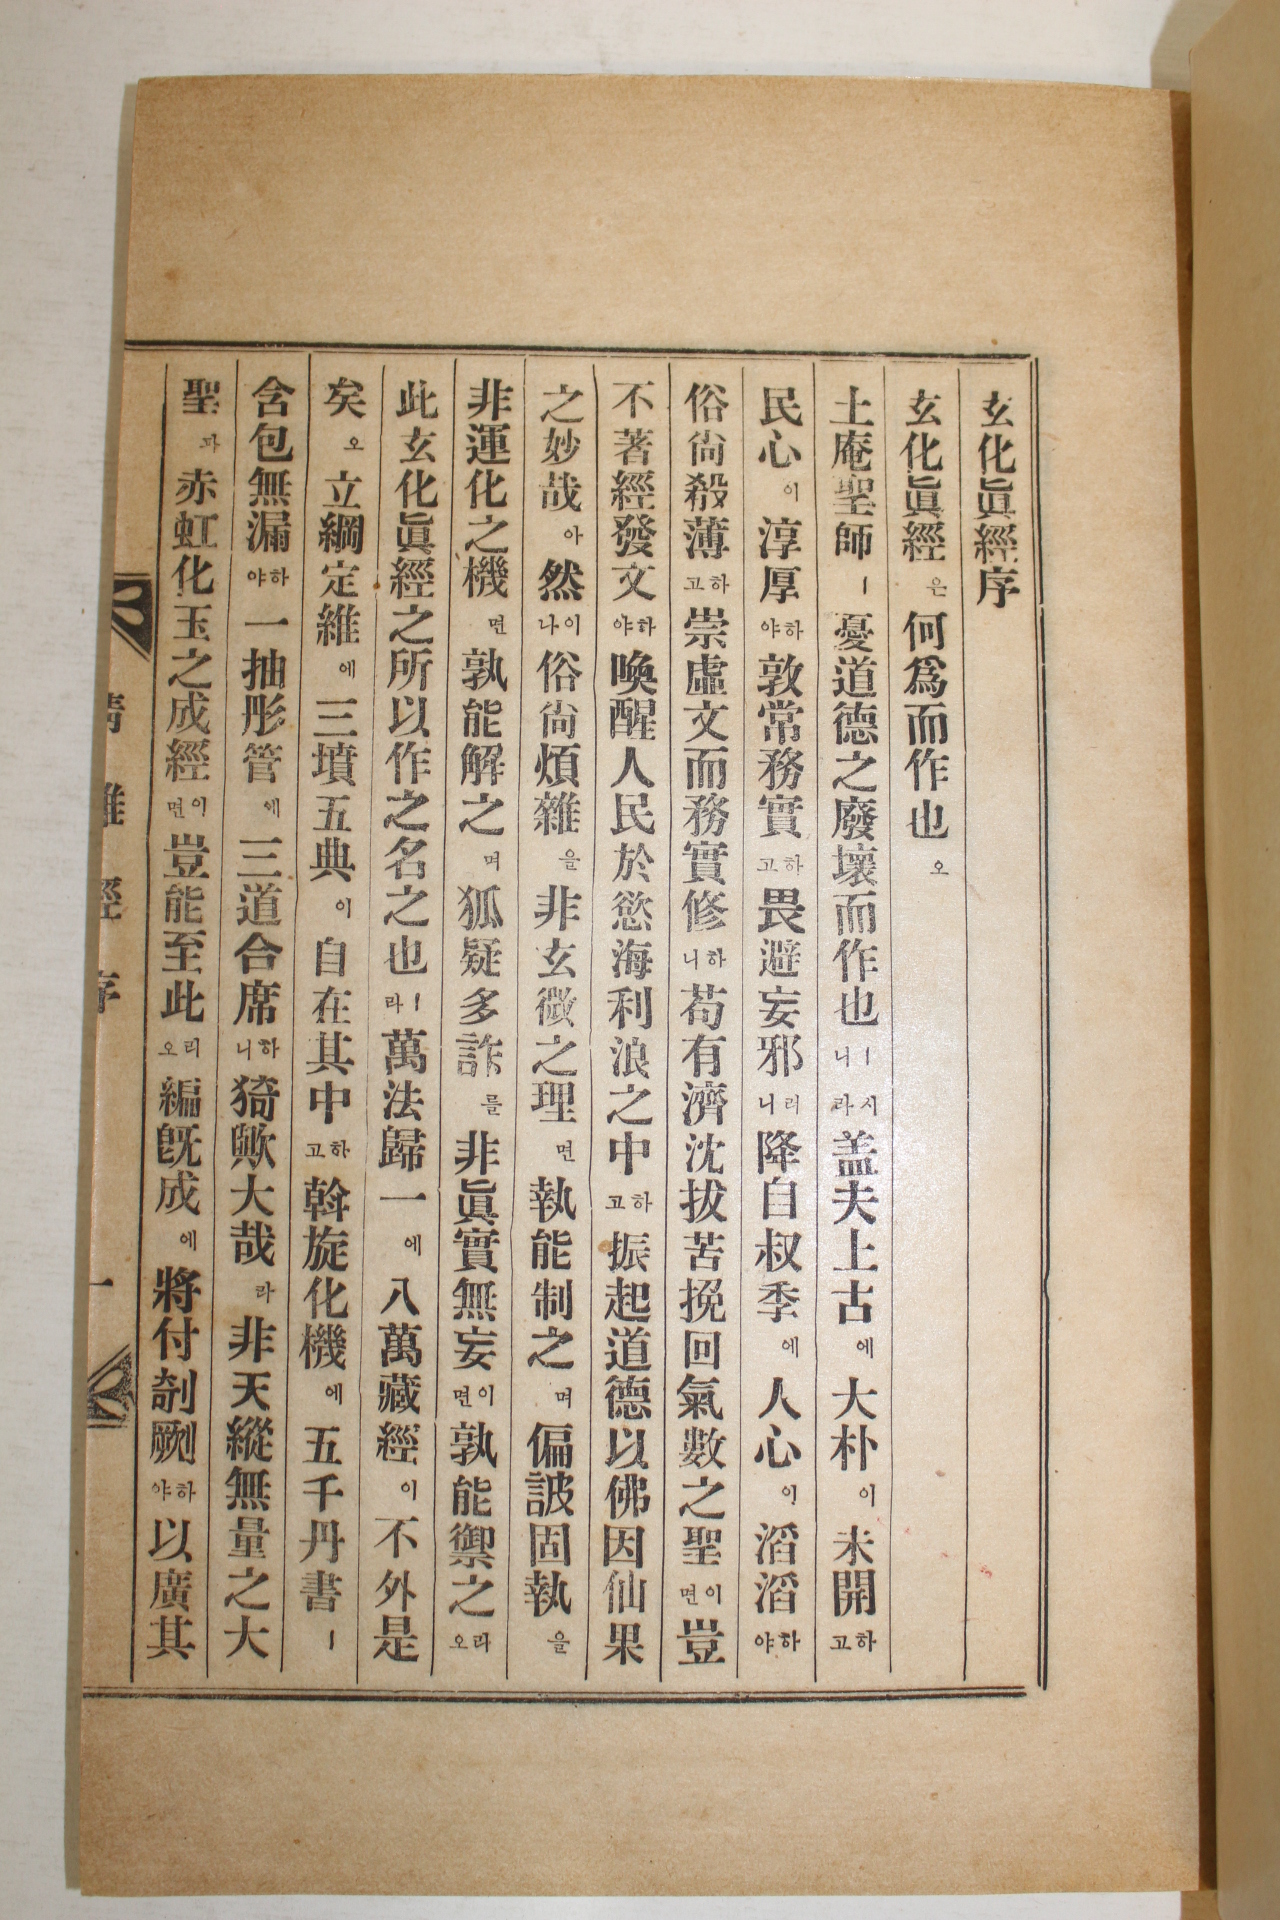 玄化眞經序
玄化眞經은何爲而作也오
土庵聖師ㅣ憂道德之廢壞而作也ㅣ시니라盖夫上古에大朴이未開하고
民心이淳厚하야敦常務實하고畏避妄邪러니降自叔季에人心이滔滔하야
俗尙殺薄하고崇虛文而務實修하니苟有濟沈拔苦挽回氣數之聖이면豈
不著經發文하야喚醒人民於慾海利浪之中하고振起道德以佛因仙果
之妙哉아然이나俗尙煩雜을非玄微之理면孰能制之며偏詖固執을
非運化之機면孰能解之며狐疑多詐를非眞實無妄이면孰能禦之오라
此玄化眞經之所以作之名之也ㅣ라萬法歸一에八萬藏經이不外是
矣오立綱定維에三墳五典이自在其中하고斡旋化機에五千丹書ㅣ
含包無漏하야一抽彤管에三道合席하니猗歟大哉라非天縱無量之大
聖과赤虹化玉之成經이면豈能至此리오編旣成에將付剞劂하야以廣其
經序
一